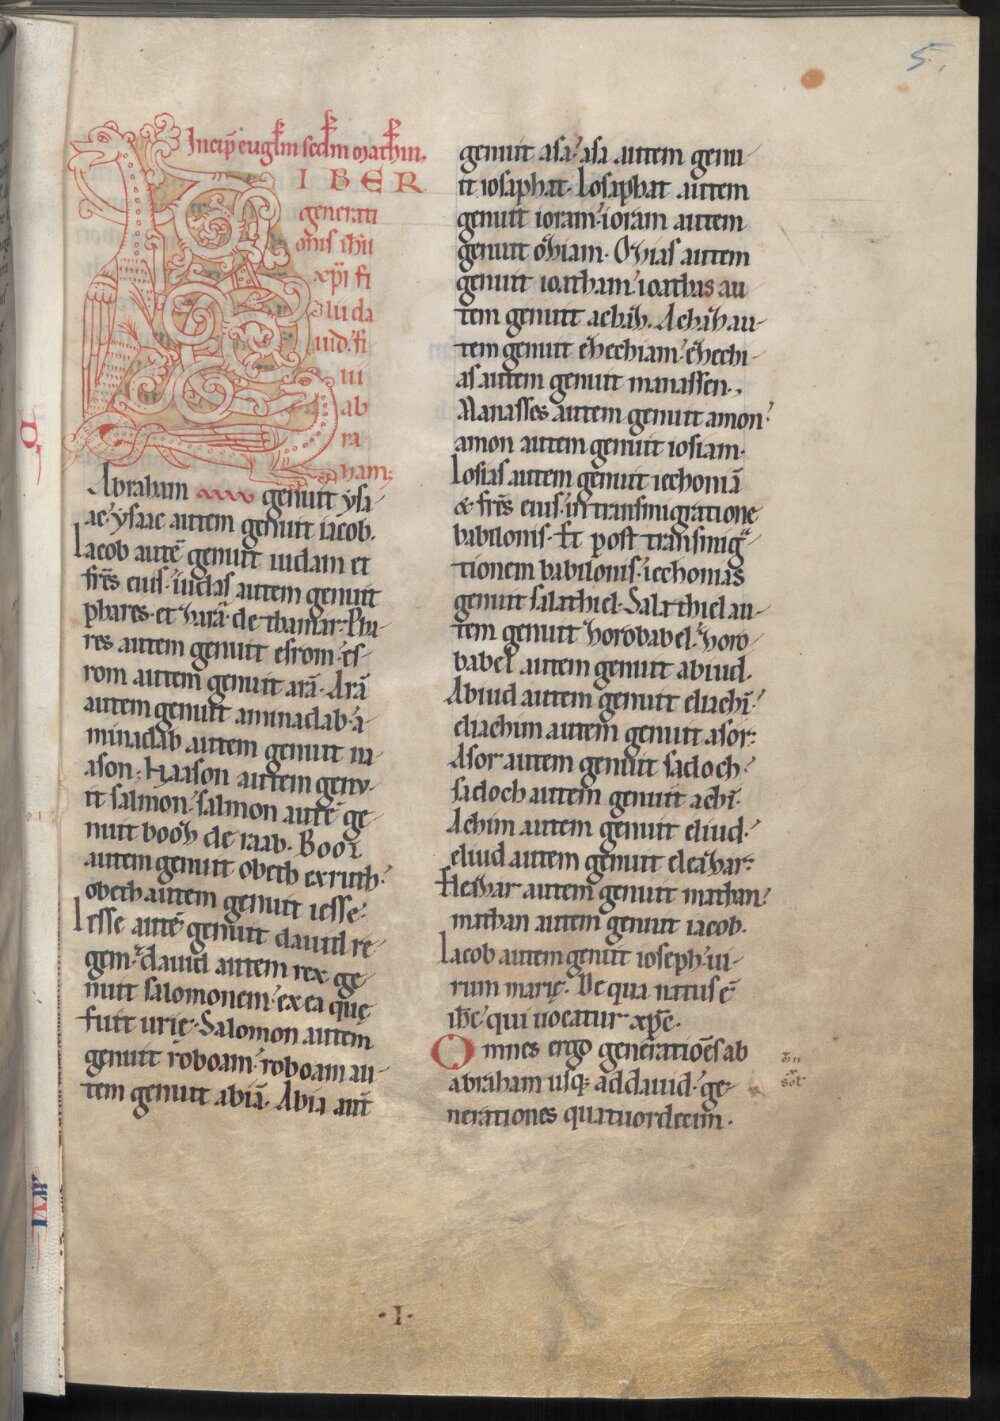 5.
Incip̄ eugl̄m scd̄m mathm̄.
LIBER
generati
onis ihū
xp̄i fi
lii da
uid. fi
lii
ab
ra
ham;
Abraham genuit ysa-
ac. ysaac autem genuit iacob.
Iacob autē genuit iudam et
fr̄es eius. iudas autem genuit
phares. et zarā. de thamar. Pha-
res autem genuit esrom. es-
rom autem genuit arā. Arā
autem genuit aminadab. a-
minadab autem genuit na-
ason. Naason autem genu-
it salmon. salmon autē ge-
nuit booz de raab. Booz
autem genuit obeth ex ruth.
obeth autem genuit iesse.
Iesse autē genuit dauid re-
gem. dauid autem rex ge-
nuit salomonem. ex ea quę
fuit urię. Salomon autem
genuit roboam. roboam au-
tem genuit abiā. Abia aut̄
genuit asa. asa autem genu-
it iosaphat. Iosaphat autem
genuit ioram. ioram autem
genuit oziam. Ozias autem
genuit ioatham. ioathas au-
tem genuit achaz. Achaz au-
tem genuit ezechiam. ezechi-
as autem genuit manassen.
Manasses autem genuit amon.
amon autem genuit iosiam.
Iosias autem genuit iechoniā
& fr̄es eius. in transmigratione
babilonis. Et post transmigͣ-
tionem babilonis. iechonias
genuit salathiel. Salathiel au-
tem genuit zorobabel. zoro-
babel autem genuit abiud.
Abiud autem genuit eliachī.
eliachim autem genuit asor.
Asor autem genuit sadoch.
sadoch autem genuit achī.
Achim autem genuit eliud.
eliud autem genuit eleazar.
Eleazar autem genuit mathan.
mathan autem genuit iacob.
Iacob autem genuit ioseph. ui-
rum marię. De qua natus ē
ihc̄ qui uocatur xp̄c.
Omnes ergo generatiōes ab
abraham usq; ad dauid. ge-
nerationes quatuordecim.
·I·